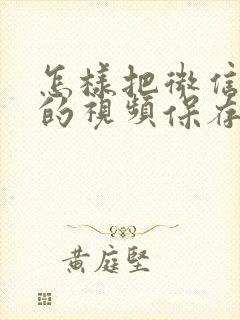 怎樣把微信
的視頻保存
黃庭堅